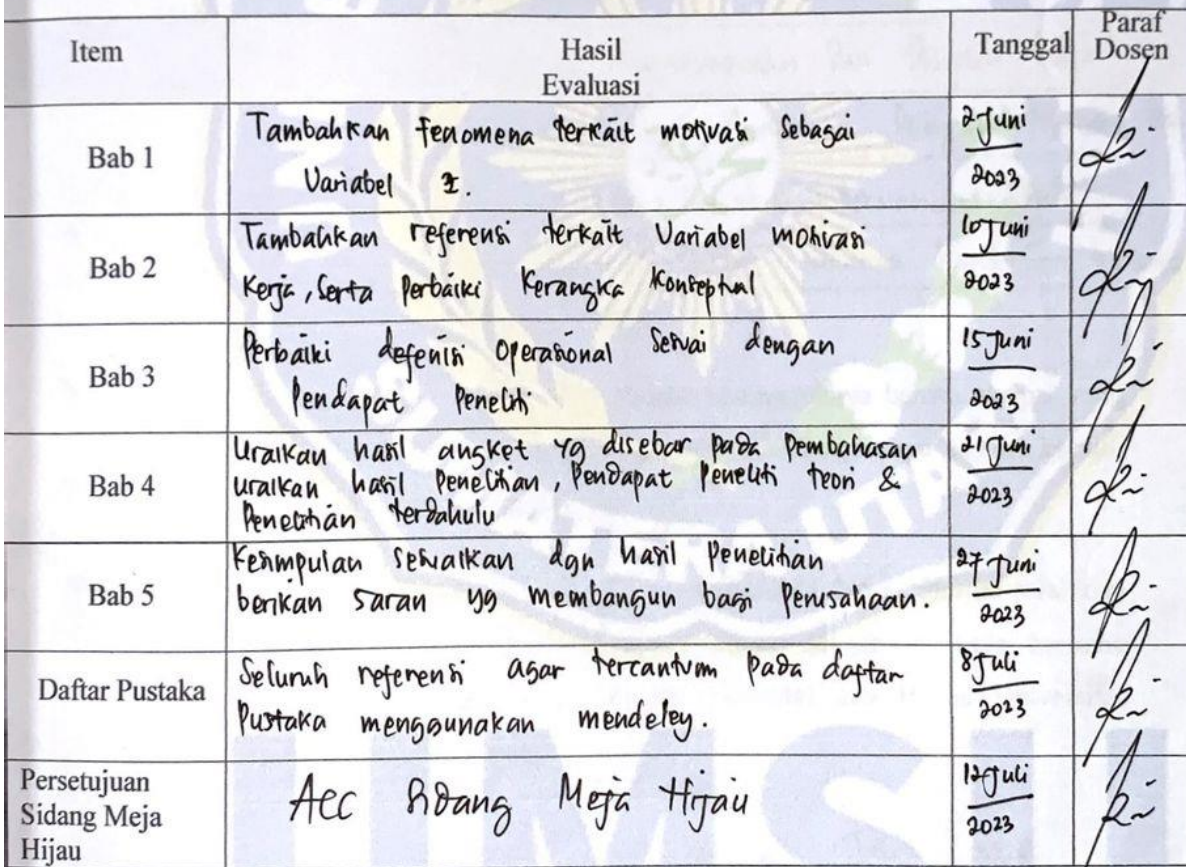 Item Hasil Evaluasi Tanggal Paraf Dosen
Bab 1
Tambahkan fenomena terkait motivasi sebagai
Variabel
2 Juni
2023
Bab 2
Tambahkan referensi terkait Variabel motivasi
Kerja, Serta Perbaiki Kerangka Konseptual
10 Juni
2023
Bab 3
Perbaiki defenisi Operasional Sesuai dengan
Pendapat Peneliti
15 Juni
2023
Bab 4
Uraikan hasil angket yg disebar pada Pembahasan
uraikan hasil Penelitian, Pendapat Peneliti teori &
Penelitian terdahulu
21 Juni
2023
Bab 5
Kesimpulan sesuaikan dgn hasil Penelitian
berikan saran yg membangun bagi Perusahaan.
27 Juni
2023
Daftar Pustaka
Seluruh referensi agar tercantum pada daftar
Pustaka menggunakan mendeley.
8 Juli
2023
Persetujuan
Sidang Meja
Hijau
Acc Sidang Meja Hijau
12 Juli
2023
UMSU